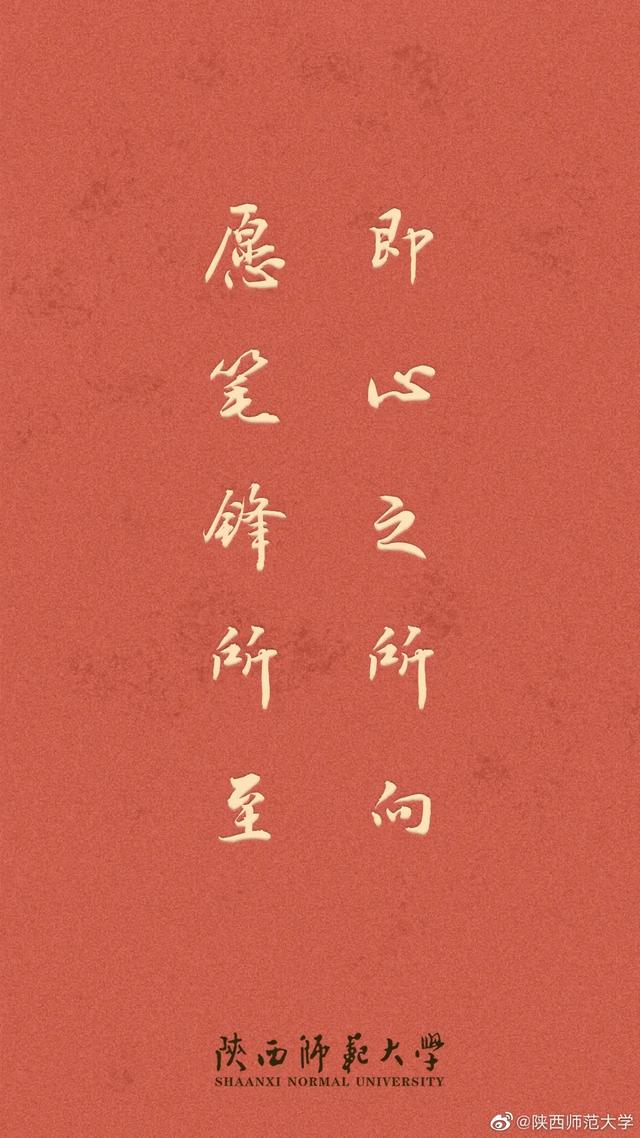 愿笔锋所至
即心之所向
陕西师範大學
SHAANXI NORMAL UNIVERSITY
@陕西师范大学